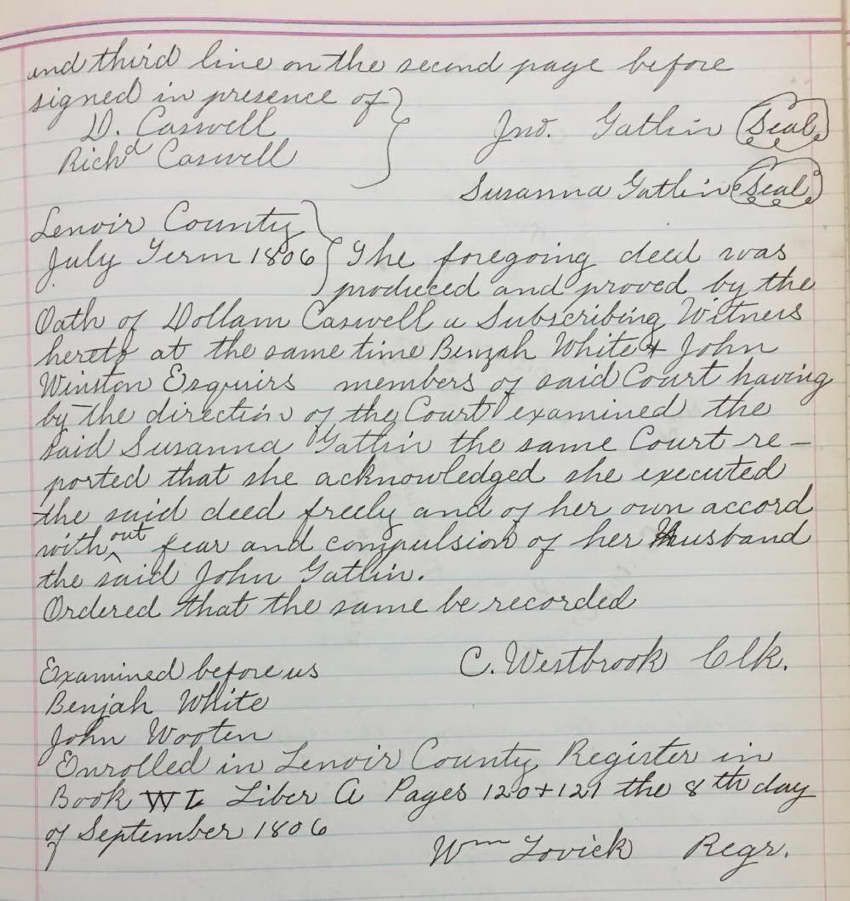 and third line on the second page before
signed in presence of
D. Caswell
Richd Caswell
Jno. Gatlin Seal
Susanna Gatlin Seal
Lenoir County
July Term 1806 The foregoing deed was
produced and proved by the
Oath of Dollam Caswell a Subscribing Witness
hereto at the same time Benjah White & John
Winston Esquirs members of said Court having
by the direction of the Court examined the
said Susanna Gatlin the same Court re-
ported that she acknowledged she executed
the said deed freely and of her own accord
without fear and compulsion of her Husband
the said John Gatlin.
Ordered that the same be recorded
C. Westbrook Clk.
Examined before us
Benjah White
John Wooten
Enrolled in Lenoir County Register in
Book Liber A Pages 120 + 121 the 8th day
of September 1806
Wm Lovick Regr.